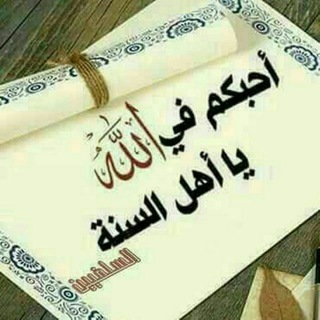 أحبكم في الله
يا أهل السنة
السلفيين